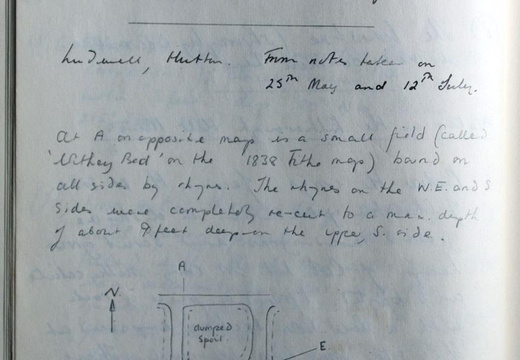 Ludwell, Hutton. From notes taken on
25th May and 12th July.
At A on opposite map is a small field (called
'Withey Bed' on the 1838 Tithe map) bound on
all sides by rhynes. The rhynes on the W. E. and S
sides were completely re-cut to a max. depth
of about 9 feet deep on the upper, S. side.
A
N
dumped
spoil.
E